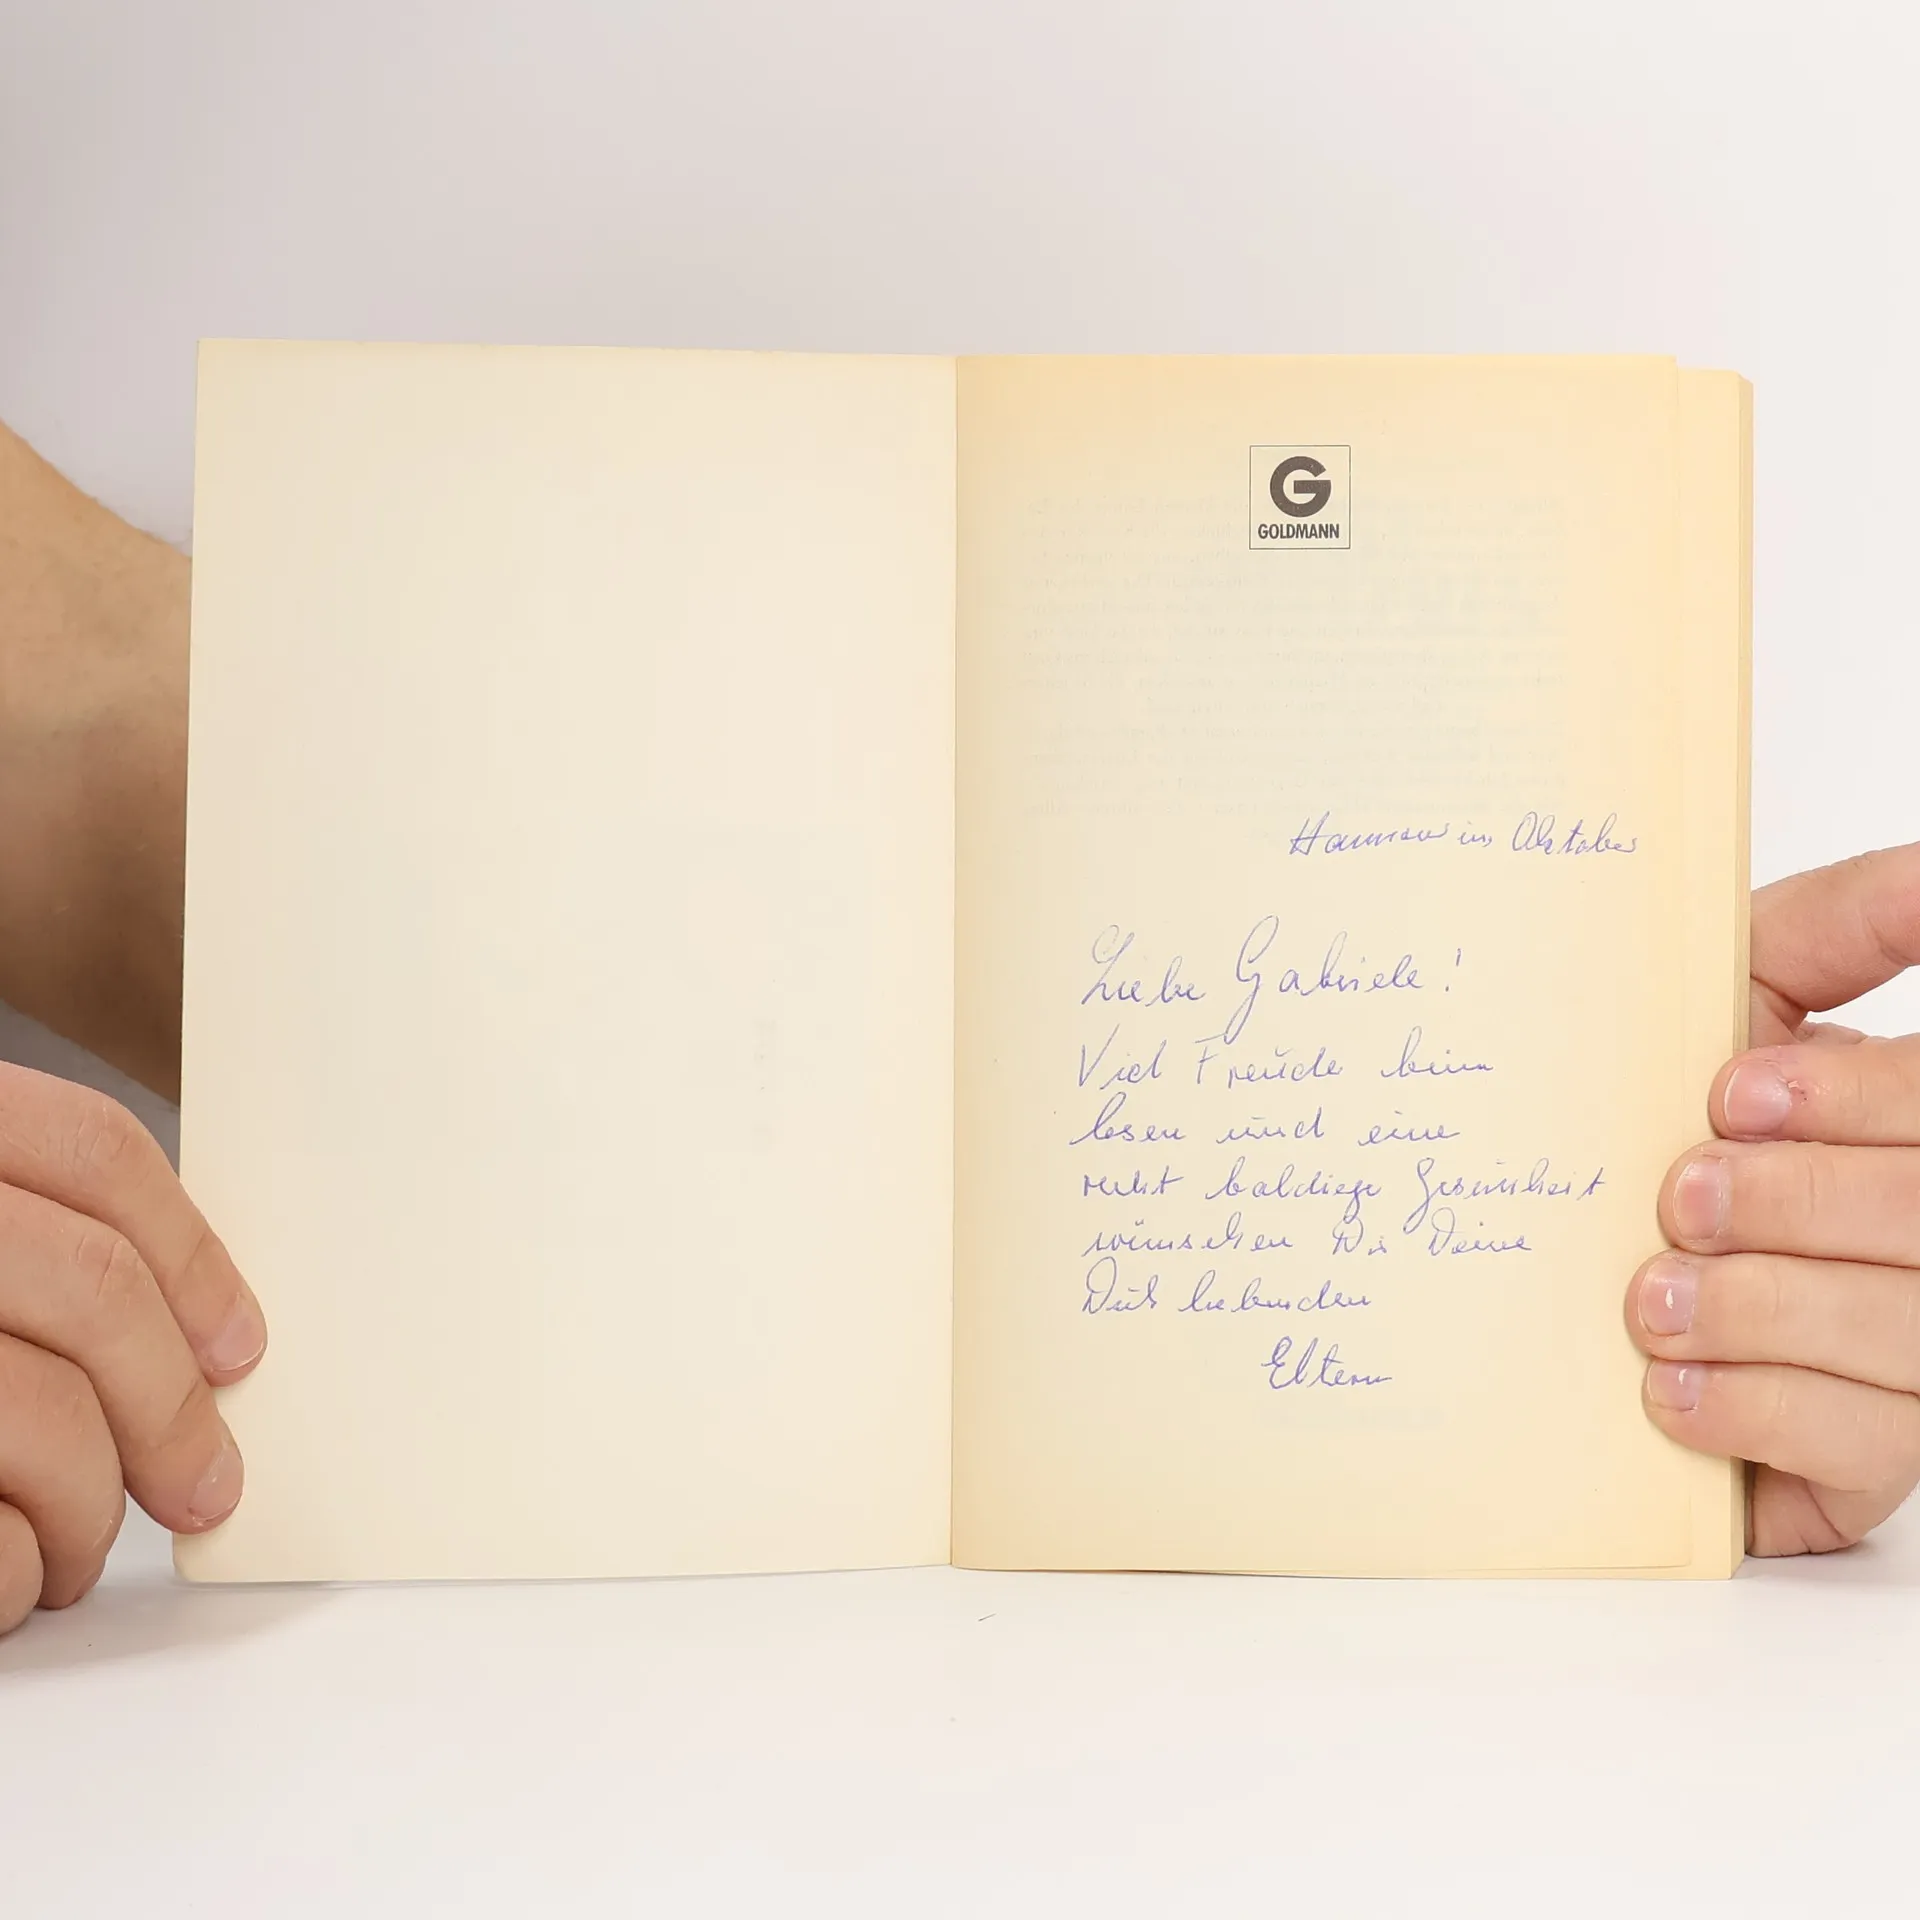 G
GOLDMANN
Hannover im Oktober
Liebe Gabriele!
Viel Freude beim
lesen und eine
recht baldige Gesundheit
wünschen Dir Deine
Dich liebenden
Eltern